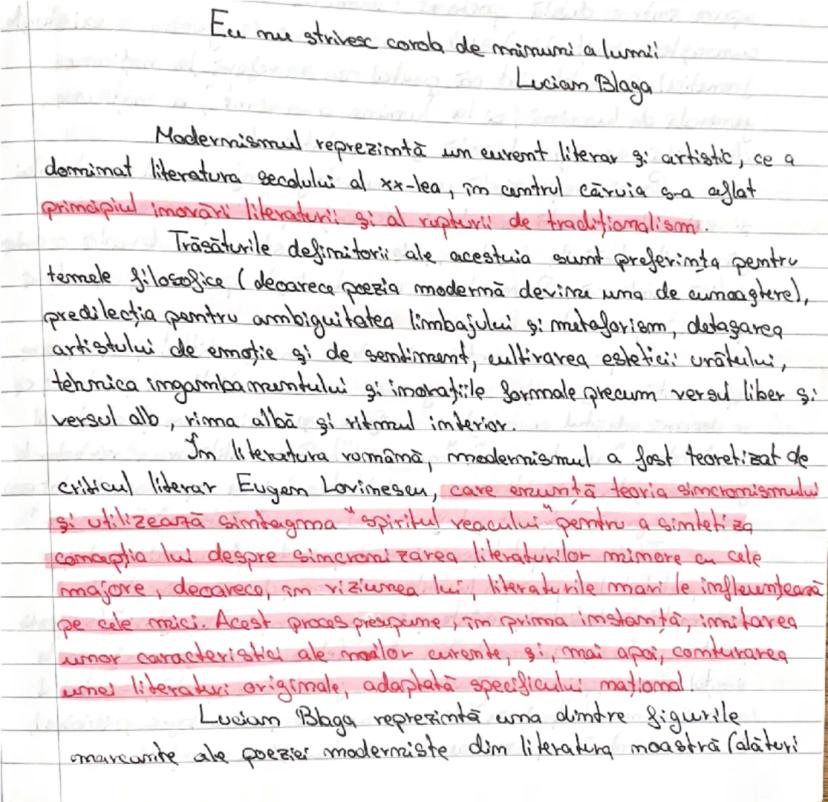 Eu nu strivesc corola de minuni a lumii
Lucian Blaga
Modernismul reprezintă un curent literar și artistic, ce a
dominat literatura secolului al xx-lea, în centrul căruia s-a aflat
principiul inovării literaturii și al rupturii de tradiționalism.
Trăsăturile definitorii ale acestuia sunt preferința pentru
temele filosofice (deoarece poezia modernă devine una de cunoaștere),
predilecția pentru ambiguitatea limbajului și metaforism, detașarea
artistului de emoție și de sentiment, cultivarea esteticii urâtului,
tehnica ingambamentului și inovațiile formale precum versul liber și
versul alb, rima albă și ritmul interior.
În literatura română, modernismul a fost teoretizat de
criticul literar Eugen Lovinescu, care enunță teoria sincronismului
și utilizează sintagma "spiritul veacului" pentru a sintetiza
concepția lui despre sincronizarea literaturilor minore cu cele
majore, deoarece, în viziunea lui, literaturile mari le influențează
pe cele mici. Acest proces presupune, în prima instanță, imitarea
unor caracteristici ale noilor curente, și, mai apoi, conturarea
unei literaturi originale, adaptată specificului național
Lucian Blaga reprezintă una dintre figurile
marcante ale poeziei moderniste din literatura noastră (alături